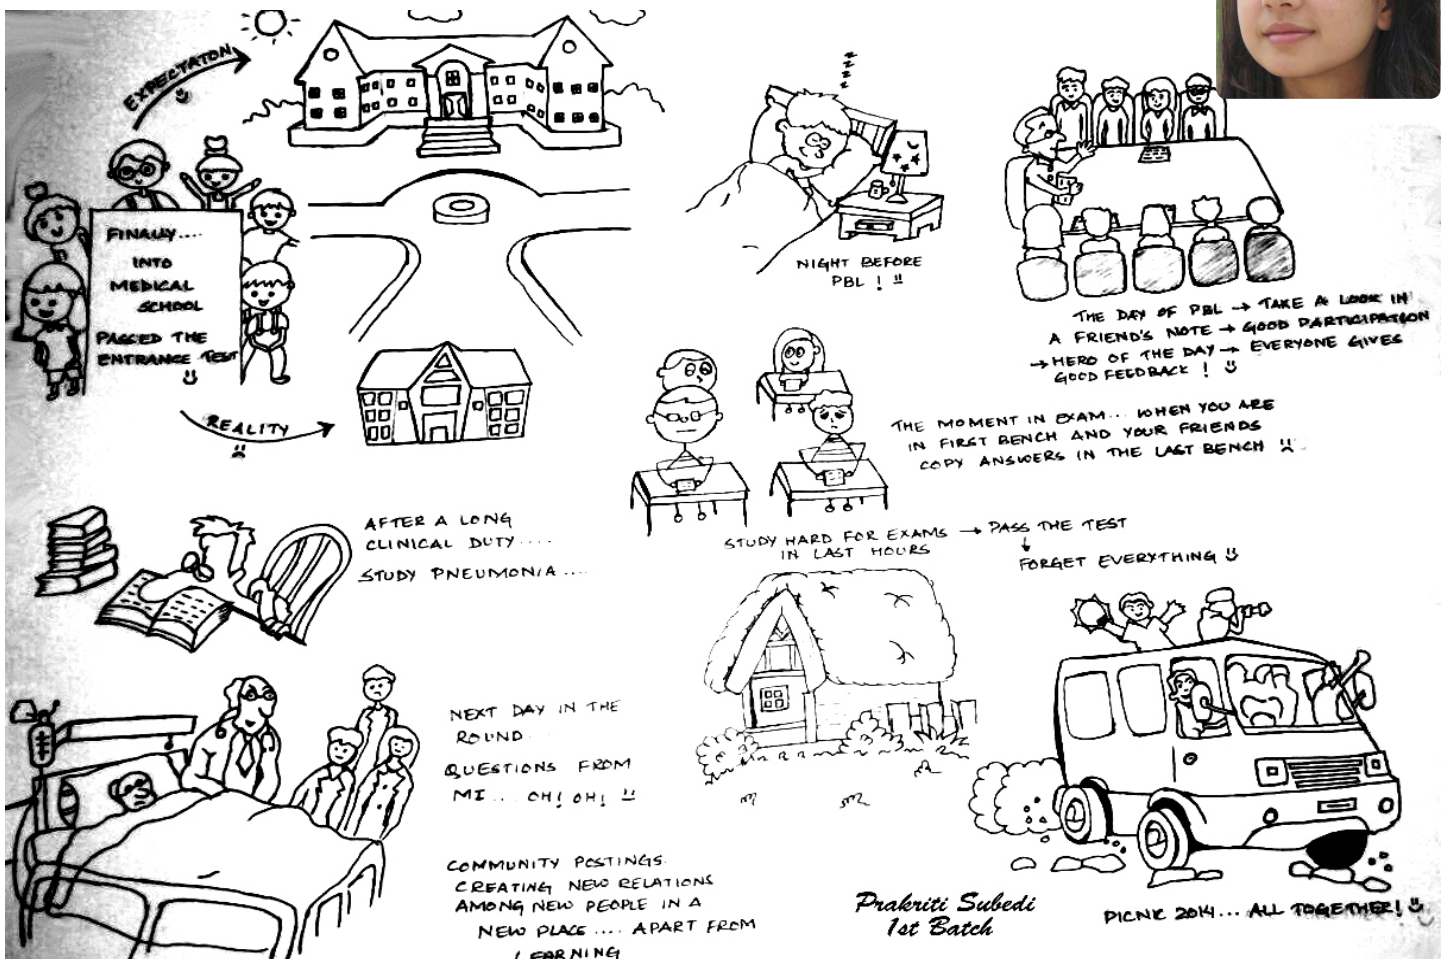 EXPECTATON
FINALLY....
INTO
MEDICAL
SCHOOL
PASSED THE
ENTRANCE TEST
REALITY
z
z
z
z
NIGHT BEFORE
PBL !
THE DAY OF PBL → TAKE A LOOK IN
A FRIEND'S NOTE → GOOD PARTICIPATION
→ HERO OF THE DAY → EVERYONE GIVES
GOOD FEEDBACK !
THE MOMENT IN EXAM... WHEN YOU ARE
IN FIRST BENCH AND YOUR FRIENDS
COPY ANSWERS IN THE LAST BENCH
STUDY HARD FOR EXAMS → PASS THE TEST
IN LAST HOURS
↓
FORGET EVERYTHING
AFTER A LONG
CLINICAL DUTY....
STUDY PNEUMONIA....
NEXT DAY IN THE
ROUND
QUESTIONS FROM
MI... OH! OH!
COMMUNITY POSTINGS
CREATING NEW RELATIONS
AMONG NEW PEOPLE IN A
NEW PLACE.... APART FROM
LEARNING
Prakriti Subedi
1st Batch
PICNIC 2014... ALL TOGETHER!